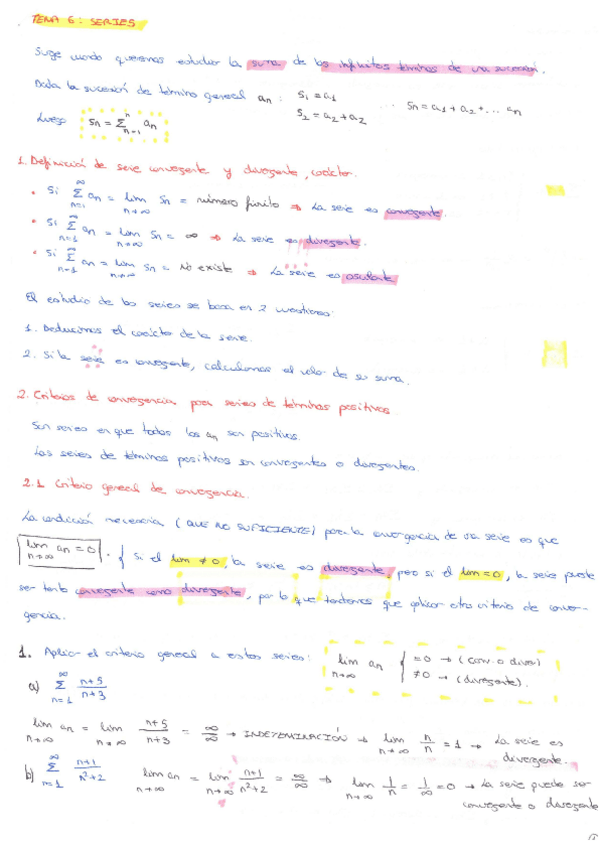 TEMA 6: SERIES
Surge cuando queremos estudiar la suma de los infinitos términos de una sucesión.
Dada la sucesión de término general an : S1 = a1 ... Sn = a1 + a2 + ... an
S2 = a2 + a2
Luego Sn = Σ n n=1 an
1. Definición de serie convergente y divergente, carácter.
• Si Σ ∞ n=1 an = lim n→∞ Sn = número finito ⇒ La serie es convergente.
• Si Σ ∞ n=1 an = lim n→∞ Sn = ∞ ⇒ La serie es divergente.
• Si Σ ∞ n=1 an = lim n→∞ Sn = No existe ⇒ La serie es oscilante
El estudio de las series se basa en 2 cuestiones:
1. Deducimos el carácter de la serie.
2. Si la serie es convergente, calculamos el valor de su suma.
2. Criterios de convergencia para series de términos positivos
Son series en que todos los an son positivos.
Las series de términos positivos son convergentes o divergentes.
2.1 Criterio general de convergencia.
La condición necesaria (QUE NO SUFICIENTE) para la convergencia de una serie es que
lim n→∞ an = 0 . { Si el lim ≠ 0, la serie es divergente, pero si el lim = 0, la serie puede
ser tanto convergente como divergente, por lo que tendremos que aplicar otro criterio de conver-
gencia.
1. Aplicar el criterio general a estas series: lim n→∞ an { = 0 → (conv. o diver)
≠ 0 → (divergente).
a) Σ ∞ n=1 n+5 / n+3
lim n→∞ an = lim n→∞ n+5 / n+3 = ∞/∞ → INDETERMINACIÓN → lim n→∞ n/n = 1 → La serie es
divergente.
b) Σ ∞ n=1 n+1 / n²+2 lim n→∞ an = lim n→∞ n+1 / n²+2 = ∞/∞ ⇒ lim n→∞ 1/n = 1/∞ = 0 → La serie puede ser
convergente o divergente